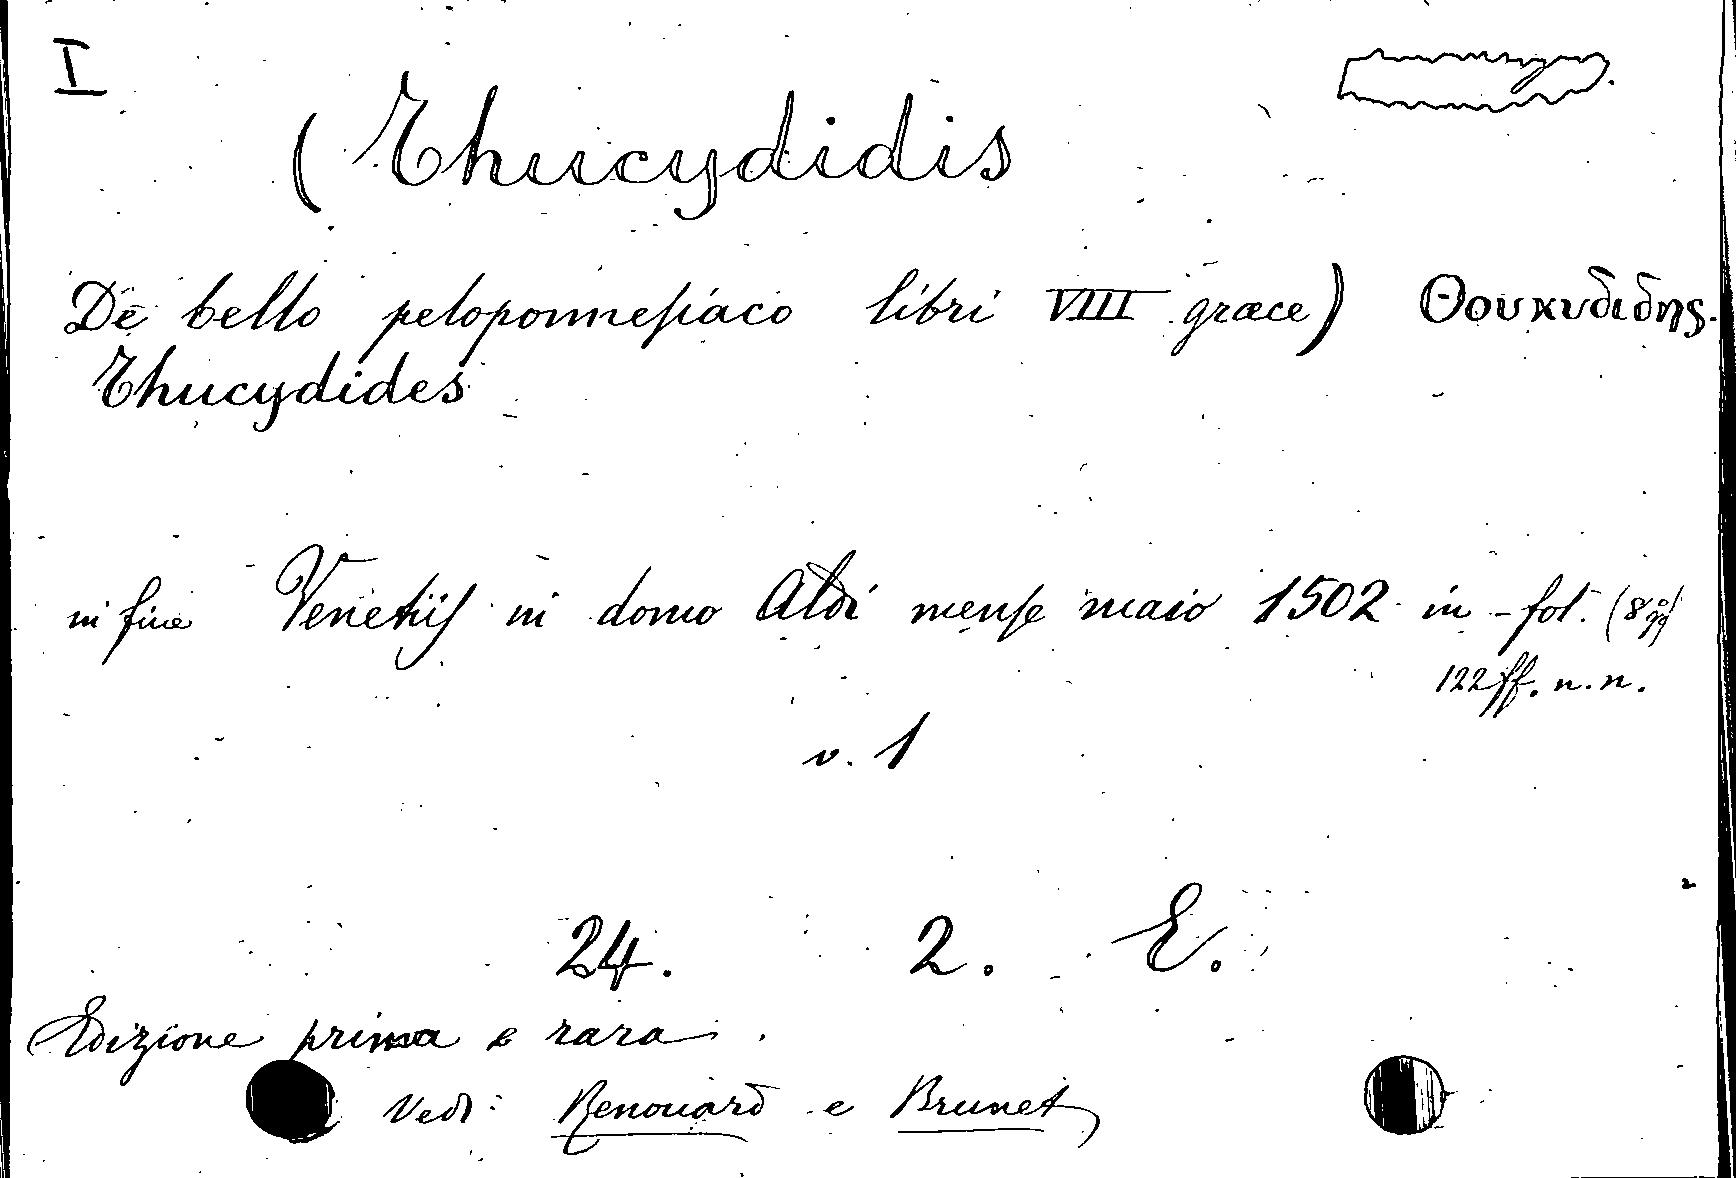 I
(Thucydidis
De bello peloponnesiaco libri VIII græce) Θουκυδιδης.
Thucydides
in fine Venetiis in domo Aldi mense maio 1502 in-fol. (8º gr)
122 ff. n. n.
v. 1
24. 2. E.
Edizione prima e rara.
Vedi: Renouard e Brunet